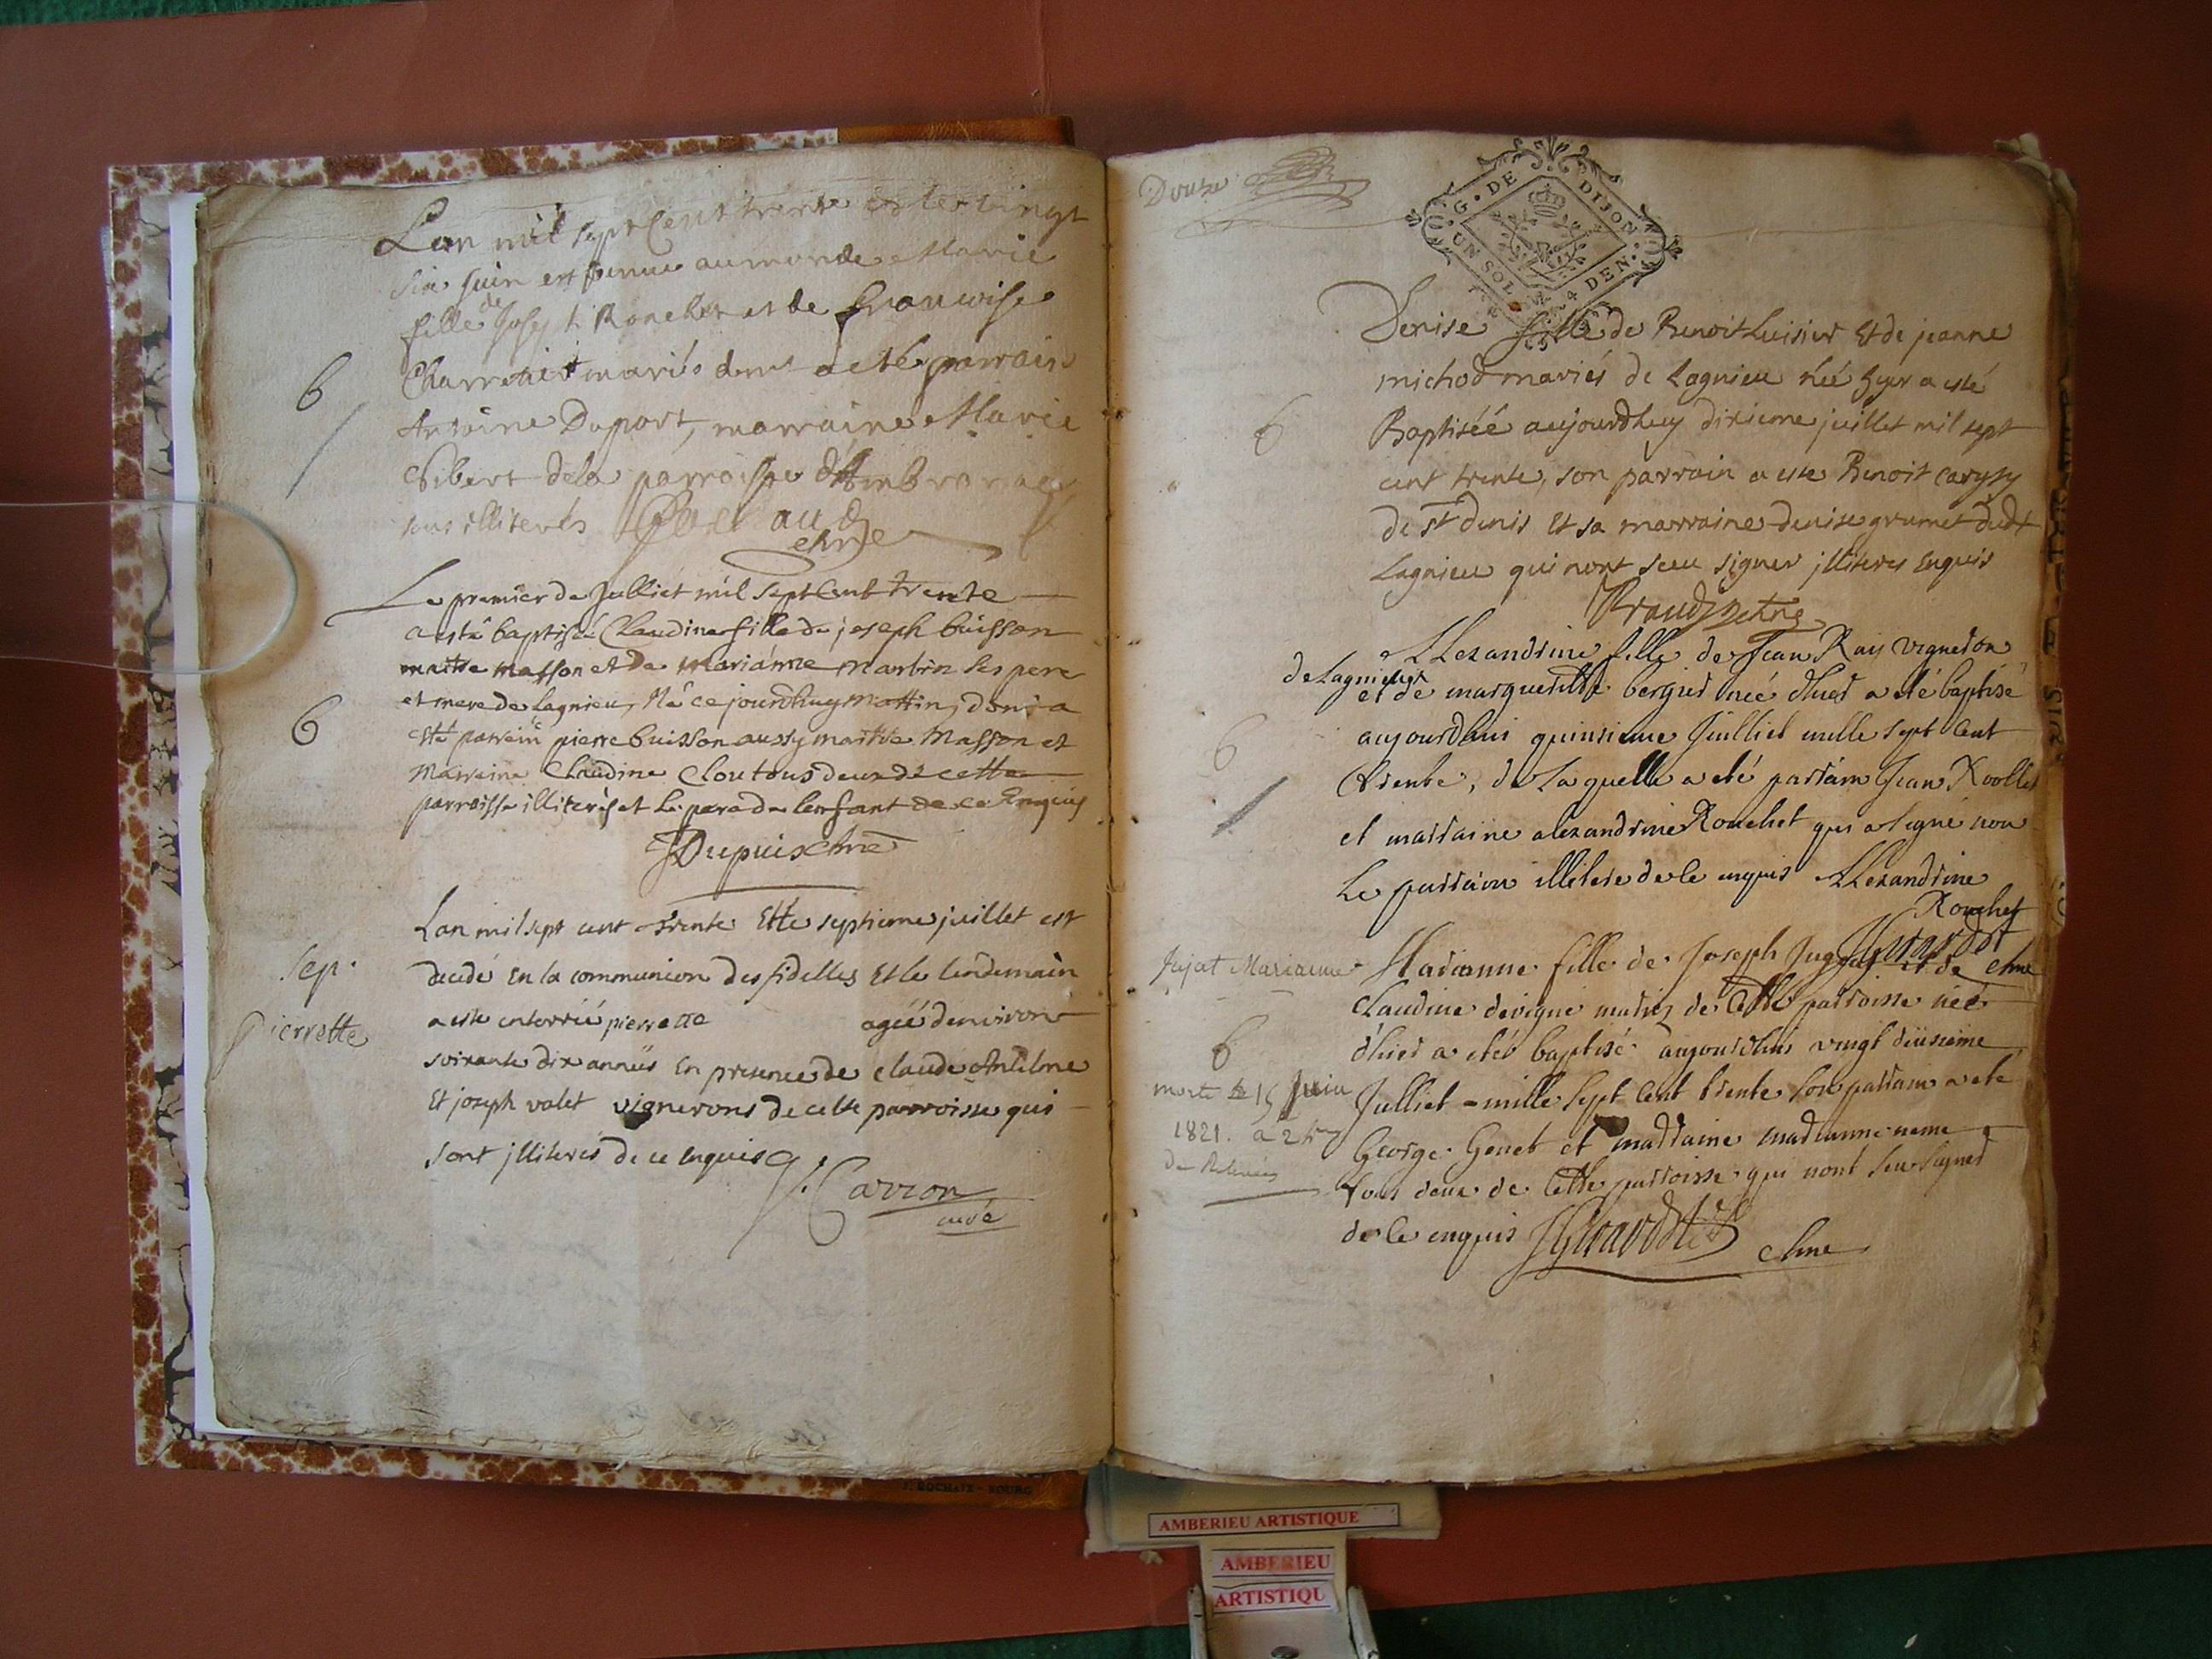 Lan mil sept Cent trente et le vingt
six juin est venue au monde Marie
fille de Joseph Ronchet et de francoise
Charretier mariés dont a eté parrain
B
Antoine Duport, marraine Marie
Sibert dela parroisse d'Ambronay
tous illiterés
Le premier de Julliet mil sept Cent trente
a esté baptisé Claudine fille de joseph buisson
maitre masson et de marianne martin ses pere
et mere de lagnieu, Né ce jourdhuy mattin, dont a
6
esté parrein pierre buisson aussy maitre Masson et
Marraine Claudine Clou tous deux de cette
parroisse illiterés et le pere de lenfant de ce Enquis
Dupuis chne
Lan mil sept cent trente Et le septieme juillet est
Sep.
decedé En la communion des fidelles Et le lendemain
Pierrette
a esté enterrée pierrette agéé denviron
soixante dix années En presence de claude Antelme
Et joseph valet vignerons de cette parroisse qui
sont jlliterés de ce enquis
Carron
curé
J. ROCHAIX - BOURG
Douze
G. DE DIJON
UN SOL 4 DEN.
Denise fille de Benoit Luisier Et de jeanne
michod mariés de Lagnieu néé hyer a esté
Baptiséé aujourdhuy dixieme juillet mil sept
6
cent trente, son parrain a esté Benoit
de st denis Et sa marraine denise grumet dudt
Lagnieu qui nont sceu signer jlliteres Enquis
Allexandrine fille de Jean Ray vigneron
de Lagnieu
et de margueritte berger néé dhier a eté baptisé
aujourdhui quinsieme Juilliet mille sept Cent
6
trente, de Laquelle a eté parrain Jean
et marraine alexandrine Ronchet qui a signé non
Le parrain illitere de Ce enquis Allexandrine
Ronchet
Girardot
chne
Jujat Marianne
Marianne fille de Joseph Jujat et de
Claudine devigne mariez de Cette parroisse néé
6
dhier a eté baptisé aujourdhui vingt
morte le 15 Juin
Julliet mille sept Cent trente son parrain a eté
1821.
George Genet et marraine marianne
tous deux de Cette parroisse qui nont seu signer
de Ce enquis JGirardot chne
AMBERIEU ARTISTIQUE
AMBERIEU
ARTISTIQU